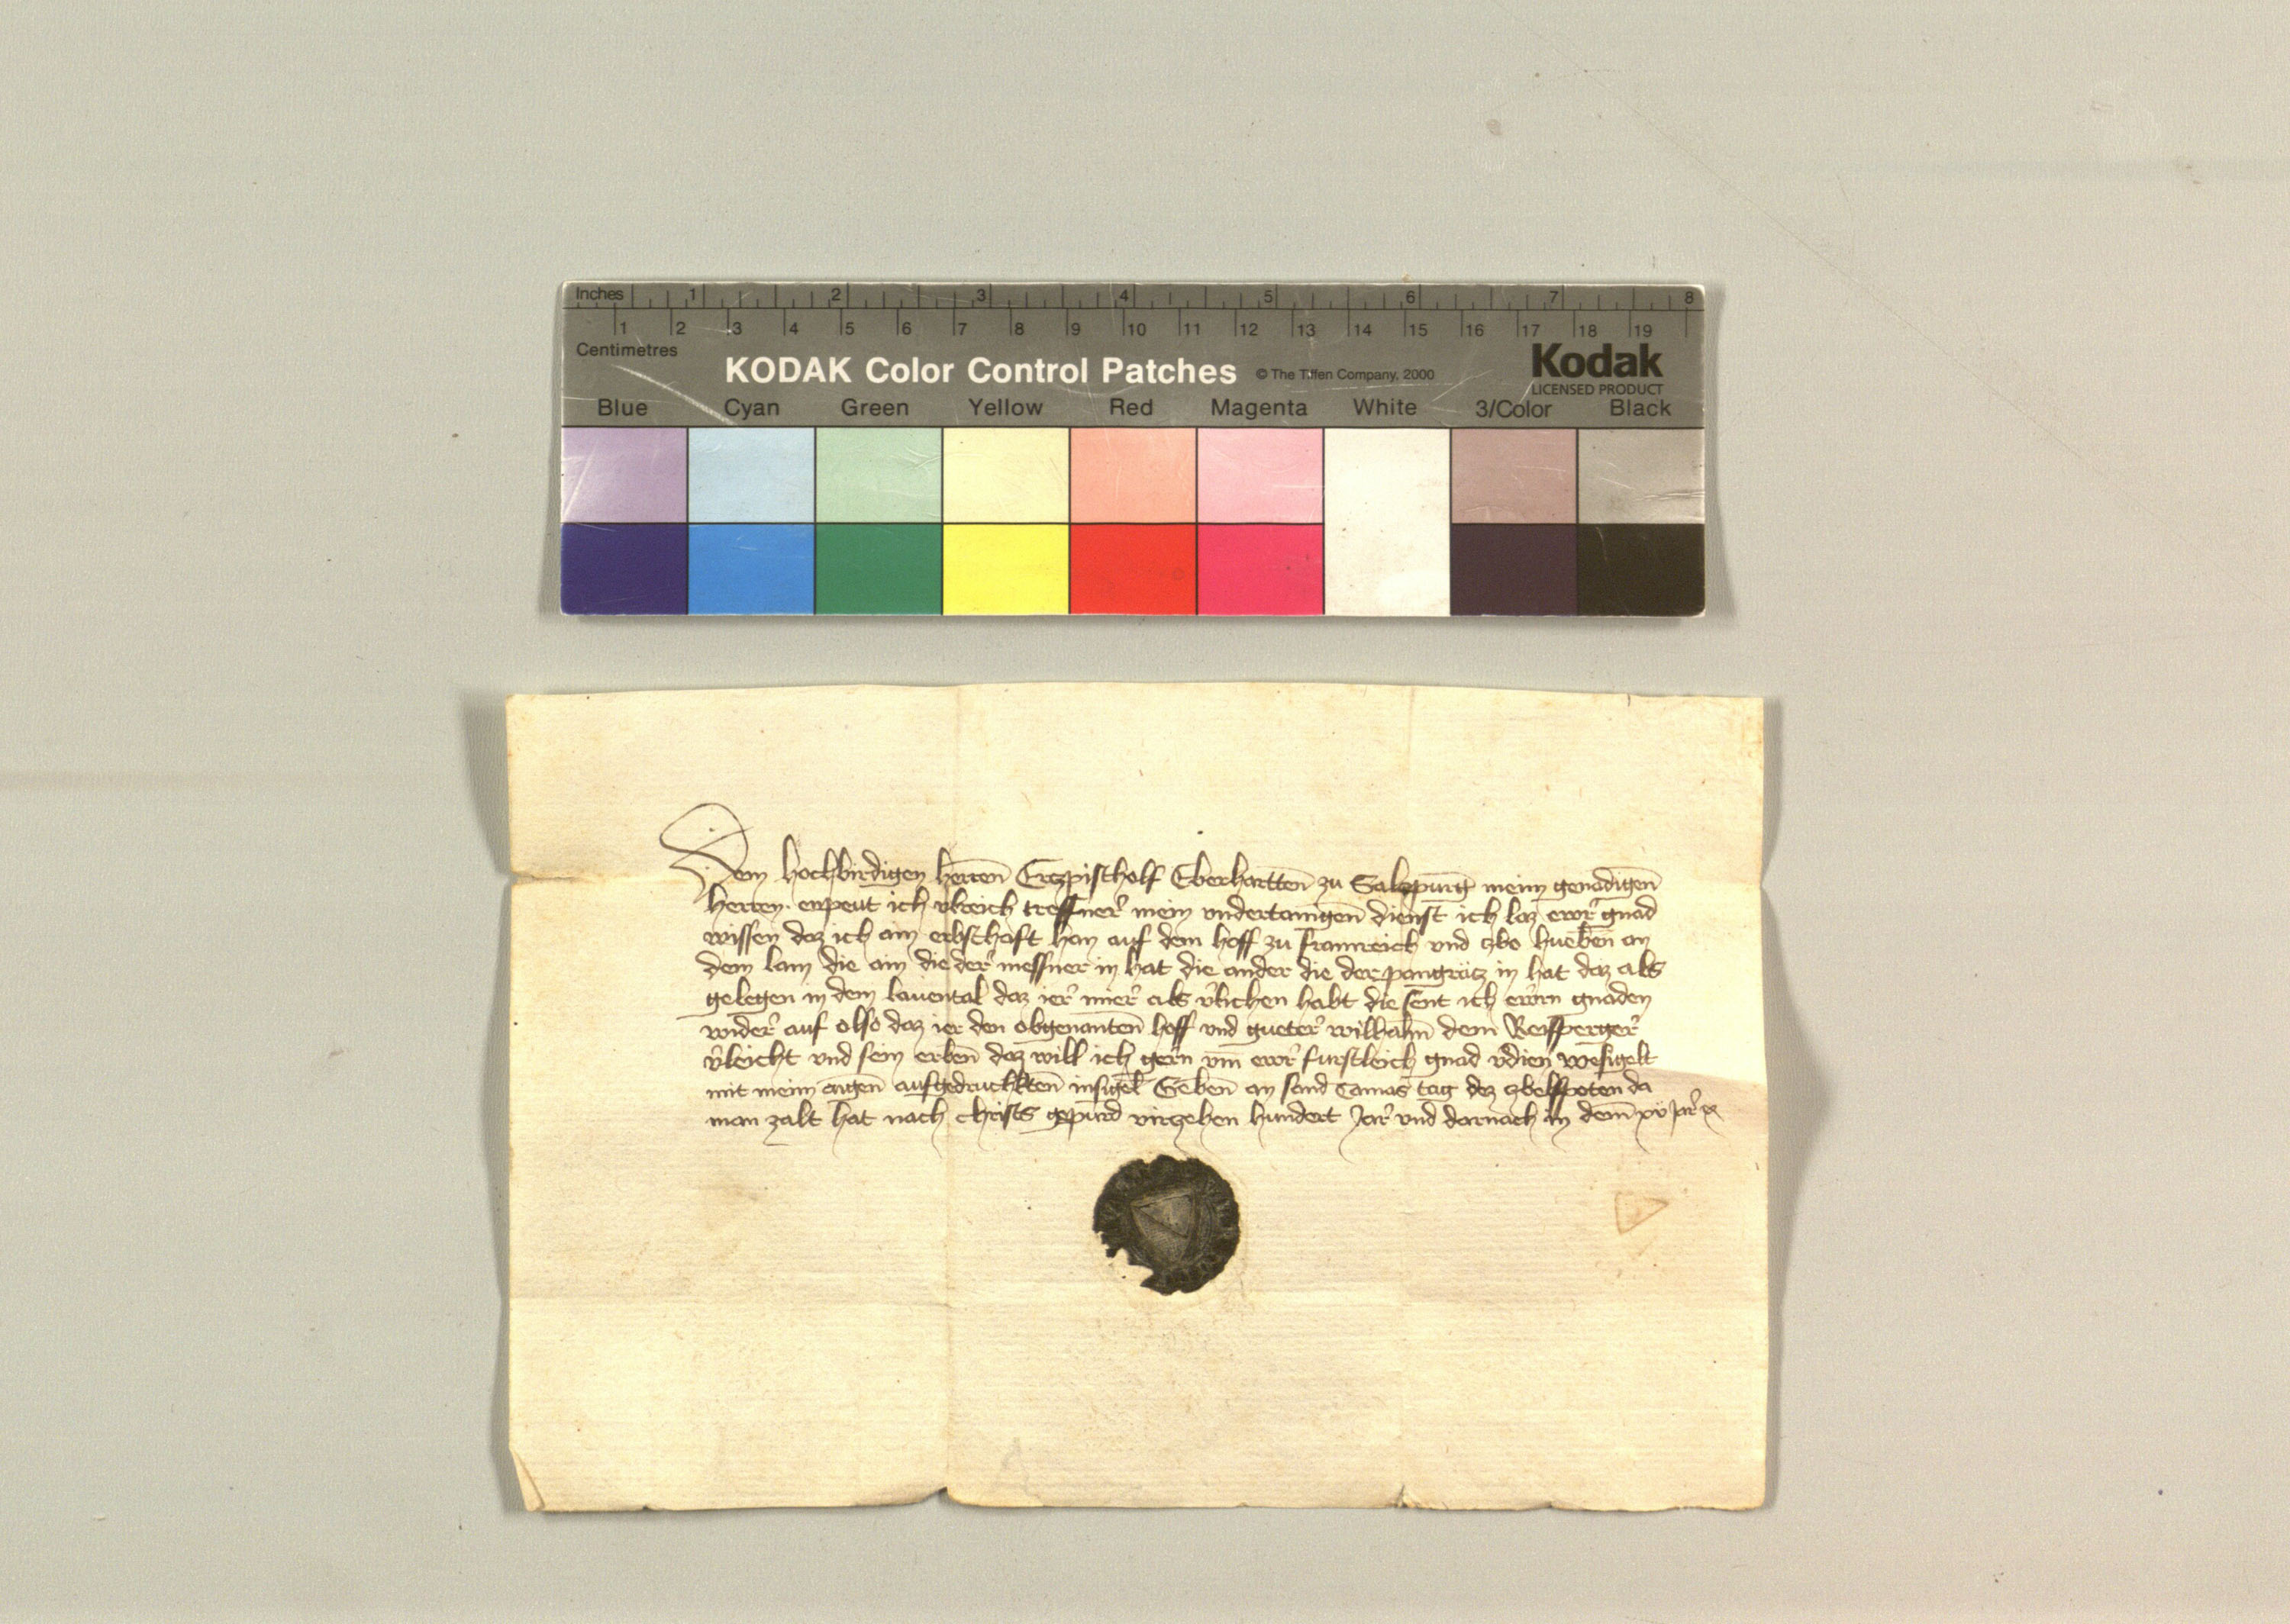 Inches 1 2 3 4 5 6 7 8
1 2 3 4 5 6 7 8 9 10 11 12 13 14 15 16 17 18 19
Centimetres
KODAK Color Control Patches © The Tiffen Company, 2000 Kodak
LICENSED PRODUCT
Blue Cyan Green Yellow Red Magenta White 3/Color Black
Dem hochbirdigen herren Erczpischolf Eberhartten zu Salczpurg meim genadigen
herren enpeut ich vlreich treffner mein vndertanigen dienst ich laz ewr gnad
wissen daz ich ain erbschaft han auf dem hoff zu framreich vnd zbo hueben an
dem lam die ain die der messner in hat die ander die der pangrätz in hat daz als
gelegen in dem lauental daz ier mer als vlichen habt die sent ich ewrn gnaden
wider auf also daz ier den obgenanten hoff vnd gueter wilhalm dem Reisperger
vleicht vnd sein erben daz will ich gern vm ewr furstleich gnad vdien vesigelt
mit meim aigen aufgedruchkten insigel Geben an sand Tamas tag dez zbelfpoten da
man zalt hat nach christs gepurd virzehen hundert Jar vnd darnach in dem xv Jar